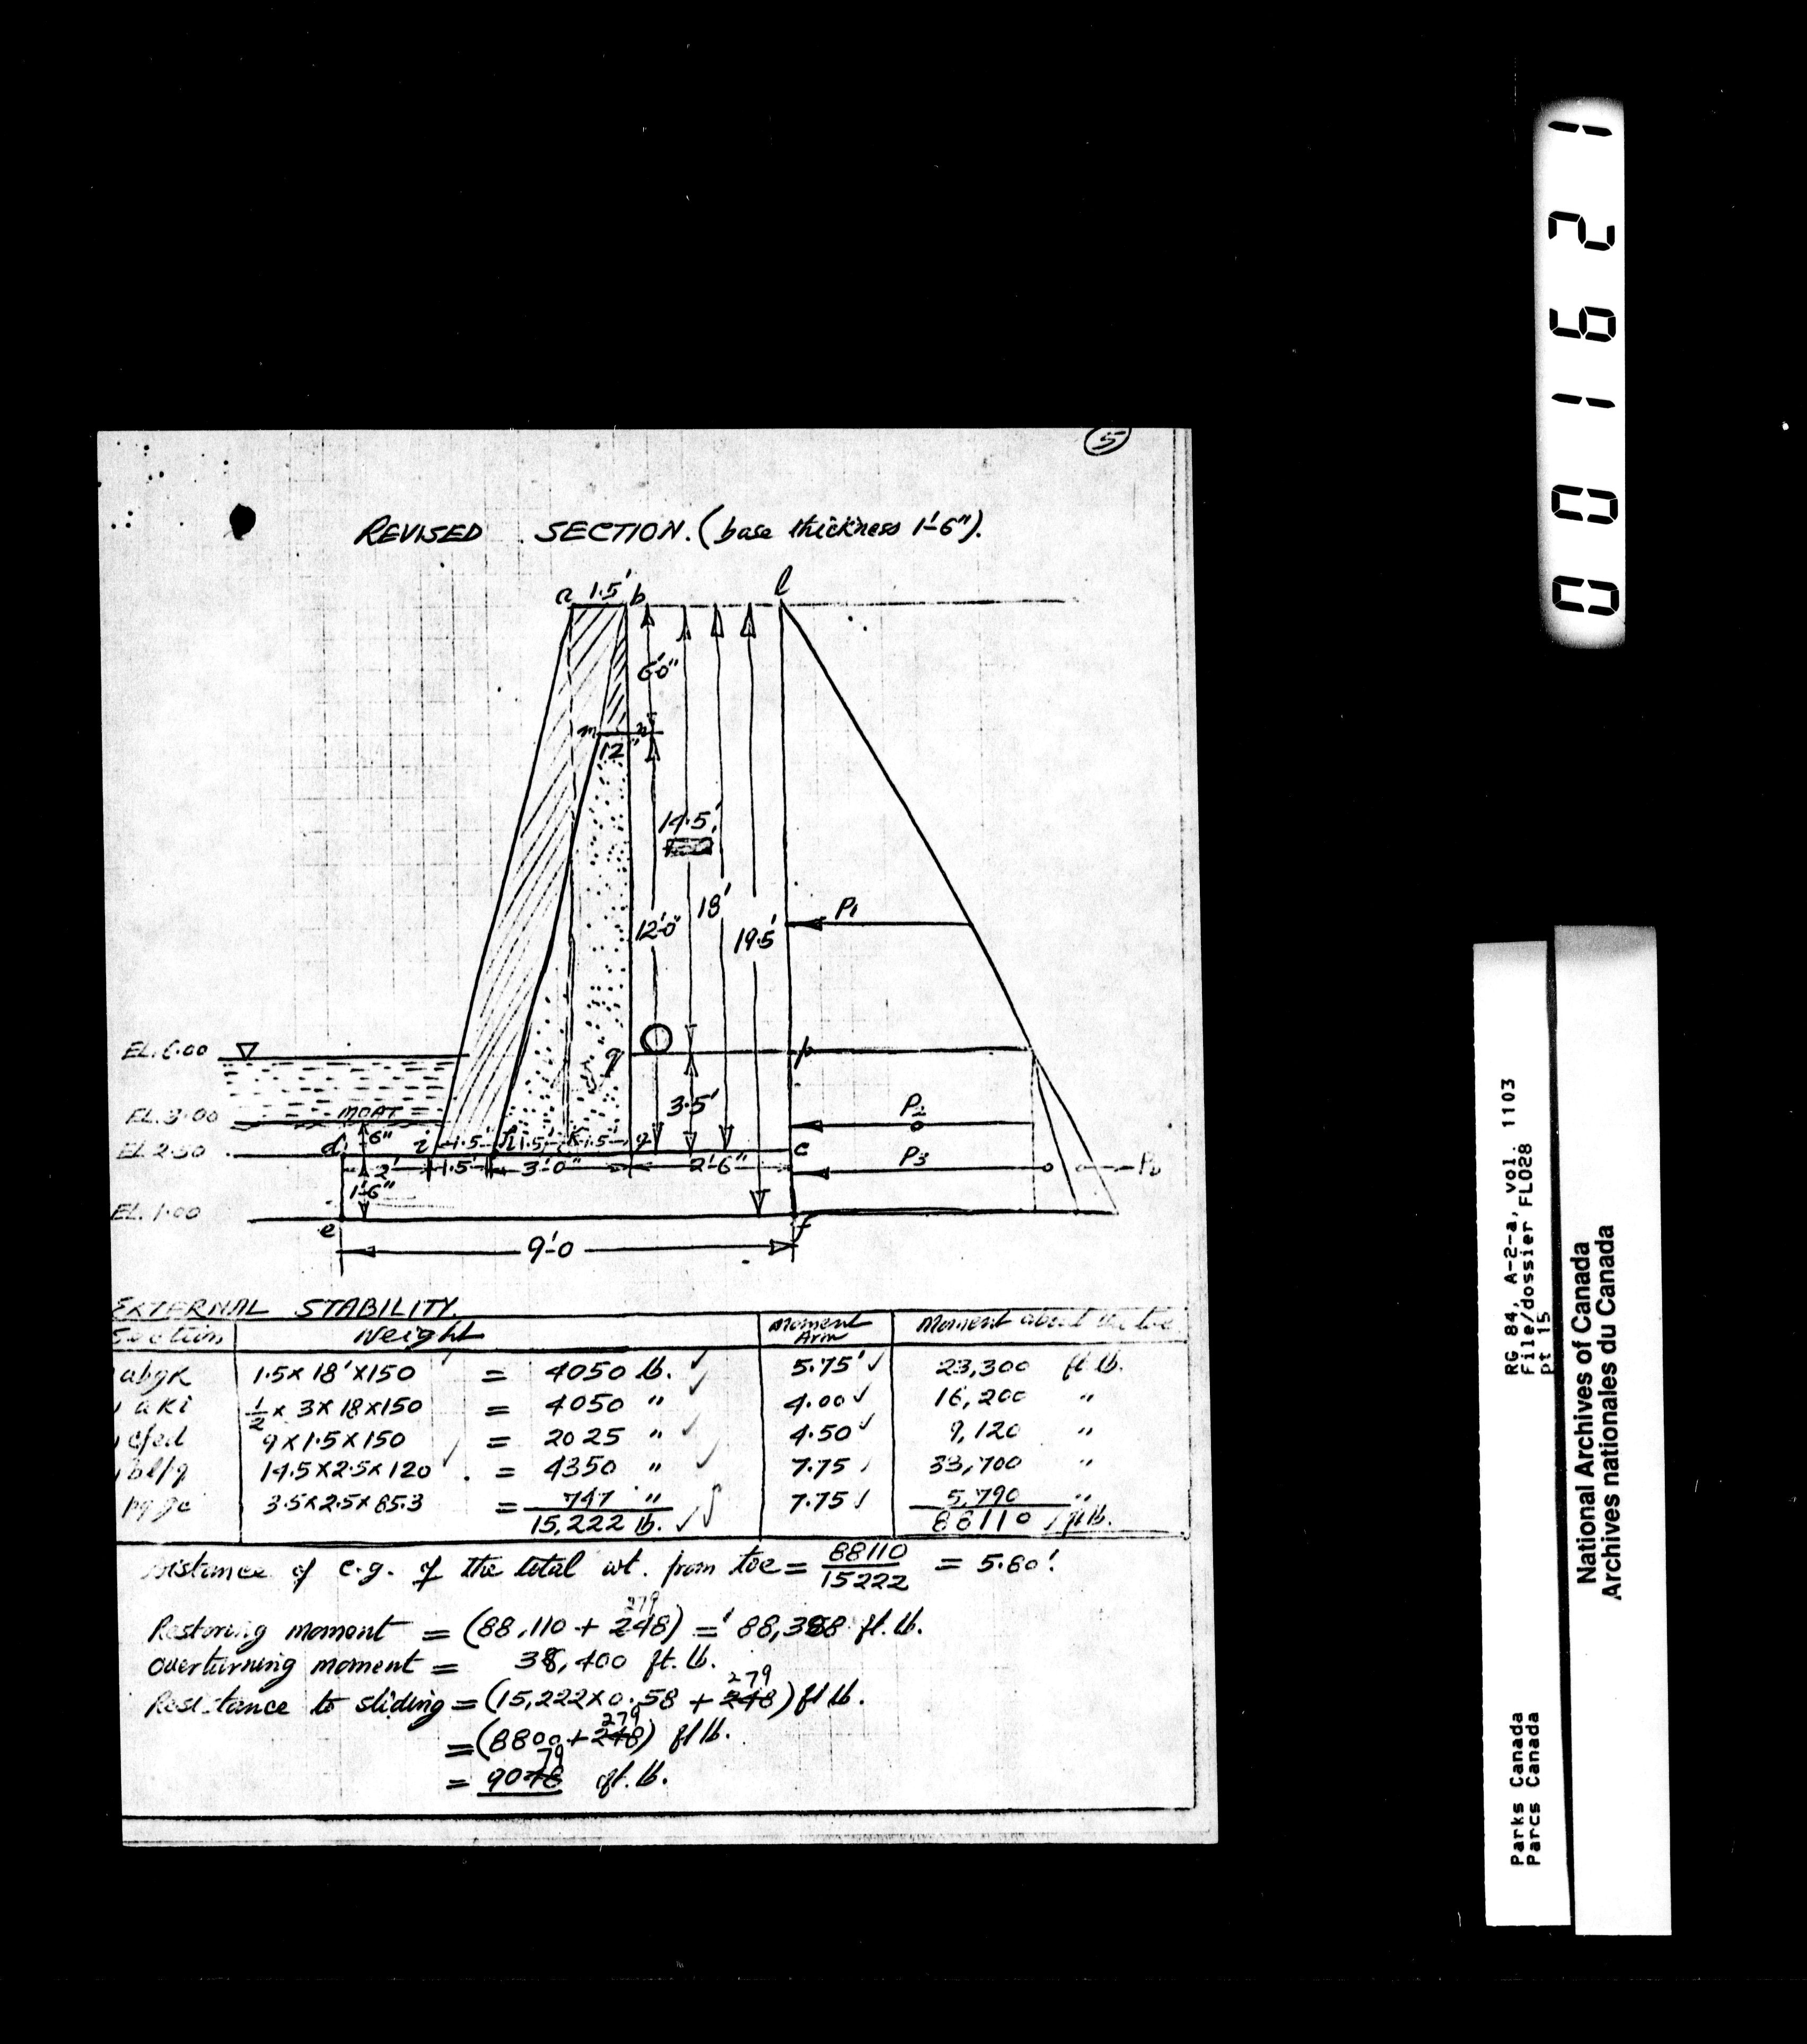 5
REVISED SECTION. (base thickness 1'-6").
a 1.5' b l
6'0"
m n
12"
14.5'
18'
12'-0"
19.5'
P1
EL. 6.00
q p
3.5'
P2
EL. 3.00 MOAT
6"
EL 2.50 d i 1.5' h 1.5' k 1.5' g c
2' 1.5' 3'-0" 2'-6" P3
1'-6"
EL. 1.00
e f
9'-0
EXTERNAL STABILITY.
Section Weight Moment Arm Moment about the toe
abgk 1.5 x 18' x 150 = 4050 lb. ✓ 5.75' ✓ 23,300 ft lb.
aki 1/2 x 3 x 18 x 150 = 4050 " 4.00 ✓ 16,200 "
cfed 9 x 1.5 x 150 = 2025 " ✓ 4.50 ✓ 9,120 "
14.5 x 2.5 x 120 = 4350 " ✓ 7.75 33,700 "
3.5 x 2.5 x 85.3 = 747 " 7.75 ✓ 5,790 "
15,222 lb. ✓ 88110 ft lb.
distance of c.g. of the total wt. from toe = 88110 / 15222 = 5.80'
279
Restoring moment = (88,110 + 248) = 88,388 ft. lb.
Overturning moment = 38,400 ft. lb.
279
Resistance to sliding = (15,222 x 0.58 + 248) ft lb.
279
= (8800 + 248) ft lb.
79
= 9048 ft. lb.
001621
RG 84, A-2-a, vol. 1103
File/dossier FLO28
pt 15
Parks Canada
Parcs Canada
National Archives of Canada
Archives nationales du Canada